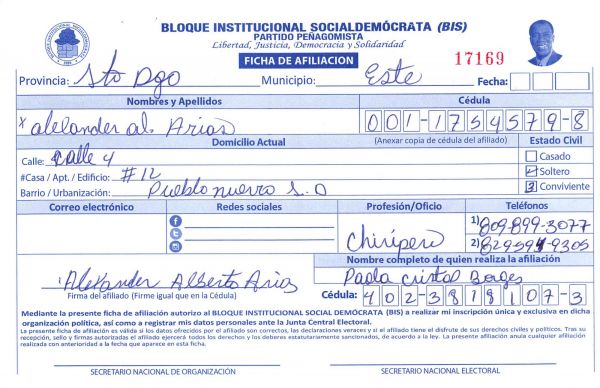 BLOQUE INSTITUCIONAL SOCIALDEMÓCRATA (BIS)
PARTIDO PEÑAGOMISTA
Libertad, Justicia, Democracia y Solidaridad
FICHA DE AFILIACION
17169
Provincia: Sto Dgo Municipio: Este Fecha:
Nombres y Apellidos Cédula
x alexander al. Arias 001-1754579-8
Domicilio Actual (Anexar copia de cédula del afiliado) Estado Civil
Calle: Calle 4 Casado
#Casa / Apt. / Edificio: #12 Soltero
Barrio / Urbanización: Pueblo nuevo S.D 3 Conviviente
Correo electrónico Redes sociales Profesión/Oficio Teléfonos
Chiripero 1) 809-899-3077
2) 829-599-9305
Nombre completo de quien realiza la afiliación
Alexander Alberto Arias Paola Cristal Borges
Firma del afiliado (Firme igual que en la Cédula) Cédula: 402-3818107-3
Mediante la presente ficha de afiliación autorizo al BLOQUE INSTITUCIONAL SOCIAL DEMÓCRATA (BIS) a realizar mi inscripción única y exclusiva en dicha
organización política, así como a registrar mis datos personales ante la Junta Central Electoral.
La presente ficha de afiliación es válida si los datos ofrecidos por el afiliado son correctos, las declaraciones veraces y si el afiliado tiene el disfrute de sus derechos civiles y políticos. Tras su
recepción, sello y firmas autorizadas el afiliado ejercerá todos los derechos y los deberes estatutariamente sancionados, de acuerdo a la ley. La presente afiliación anula cualquier afiliación
realizada con anterioridad a la fecha que aparece en esta ficha.
SECRETARIO NACIONAL DE ORGANIZACIÓN SECRETARIO NACIONAL ELECTORAL